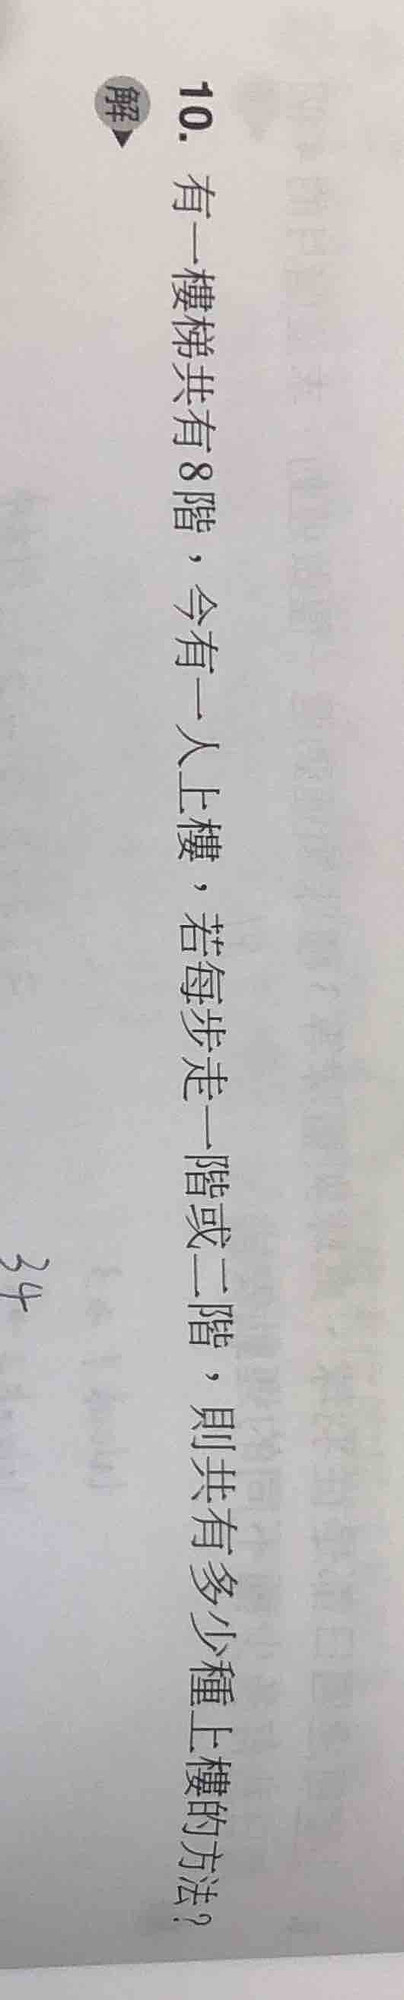 10. 有一樓梯共有8階，今有一人上樓，若每步走一階或二階，則共有多少種上樓的方法？
解
34